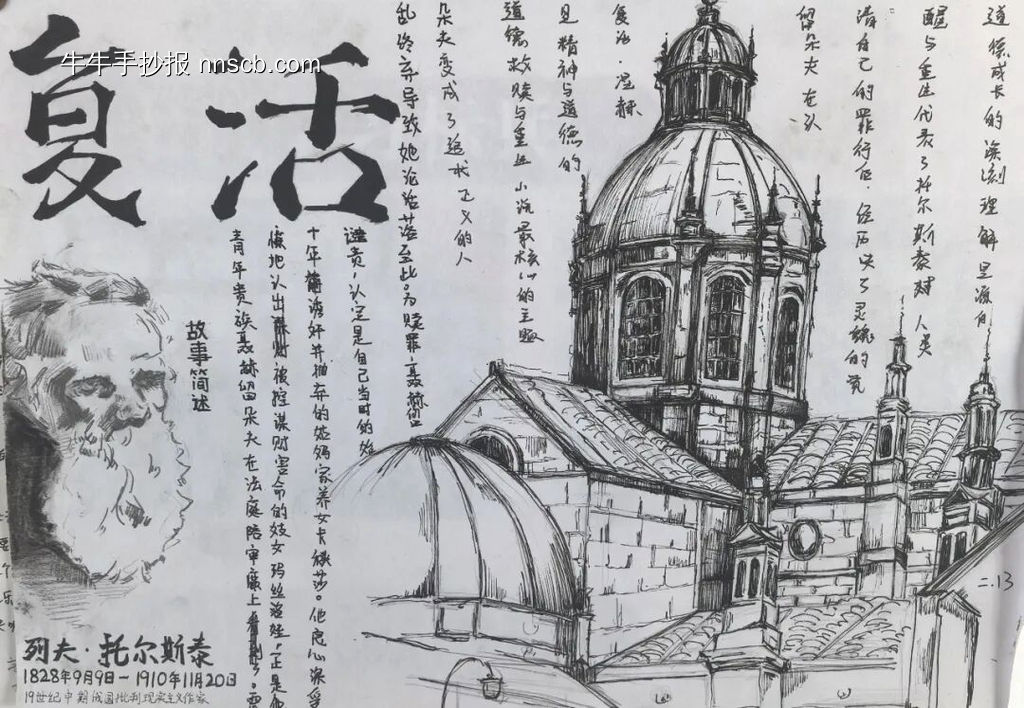 复活
牛牛手抄报 nnscb.com
故事简述
青年贵族聂赫留朵夫在法庭陪审席上
地认出被控谋财害命的妓女玛丝洛娃，正是他
十年前诱奸并抛弃的姑妈家养女卡秋莎。他良心深受
谴责，认定是自己当时的始
乱终弃导致她沦落至此。为赎罪，聂赫留
朵夫变成了追求正义的人
道德救赎与重生 小说最核心的主题
见 精神与道德的
复活·涅赫
留朵夫在认
清自己的罪行后，经历了灵魂的觉
醒与重生代表了托尔斯泰对人类
道德成长的深刻理解 里源自
二.13
列夫·托尔斯泰
1828年9月9日-1910年11月20日
19世纪中期俄国批判现实主义作家